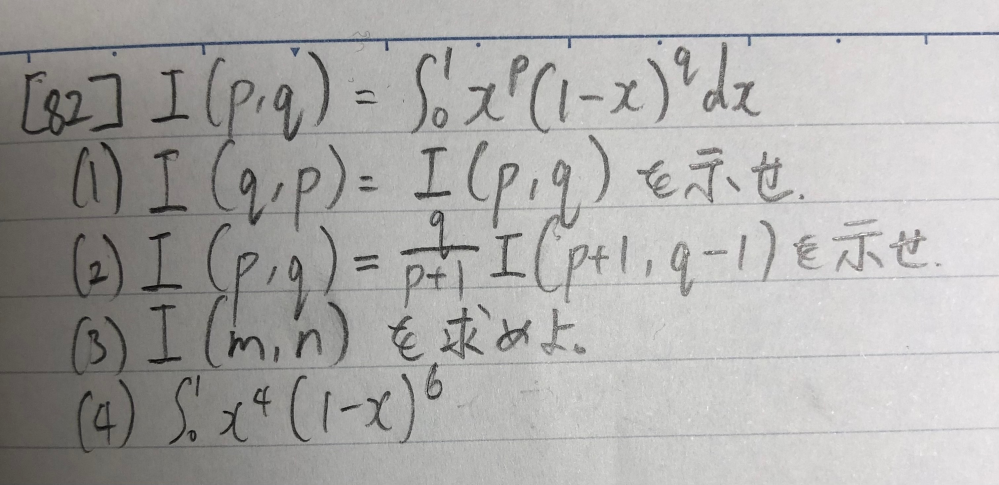 [82] I(p,q) = ∫₀¹ x^p (1-x)^q dx
(1) I(q,p) = I(p,q) を示せ.
(2) I(p,q) = q/(p+1) I(p+1, q-1) を示せ.
(3) I(m,n) を求めよ。
(4) ∫₀¹ x⁴ (1-x)⁶